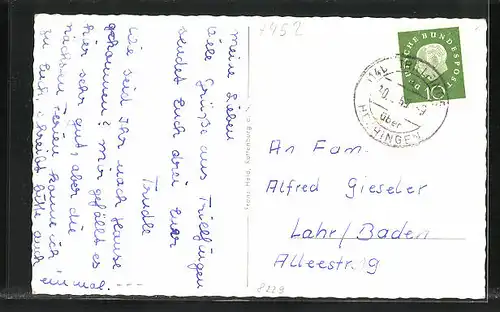 +452
Meine Lieben
Viele Grüße aus Trillfingen
sendet Euch drei Euer
Trudle
Wie seid Ihr nach Hause
gekommen? Mir gefällt es
hier sehr gut, aber die
nächsten Ferien komme ich
zu Euch, schreibt bitte auch
einmal. ---
Franz Held, Rottenburg a. N.
DEUTSCHE BUNDESPOST
10
über
HECHINGEN
An Fam.
Alfred Gieseler
Lahr/Baden
Alleestr. 19
8229